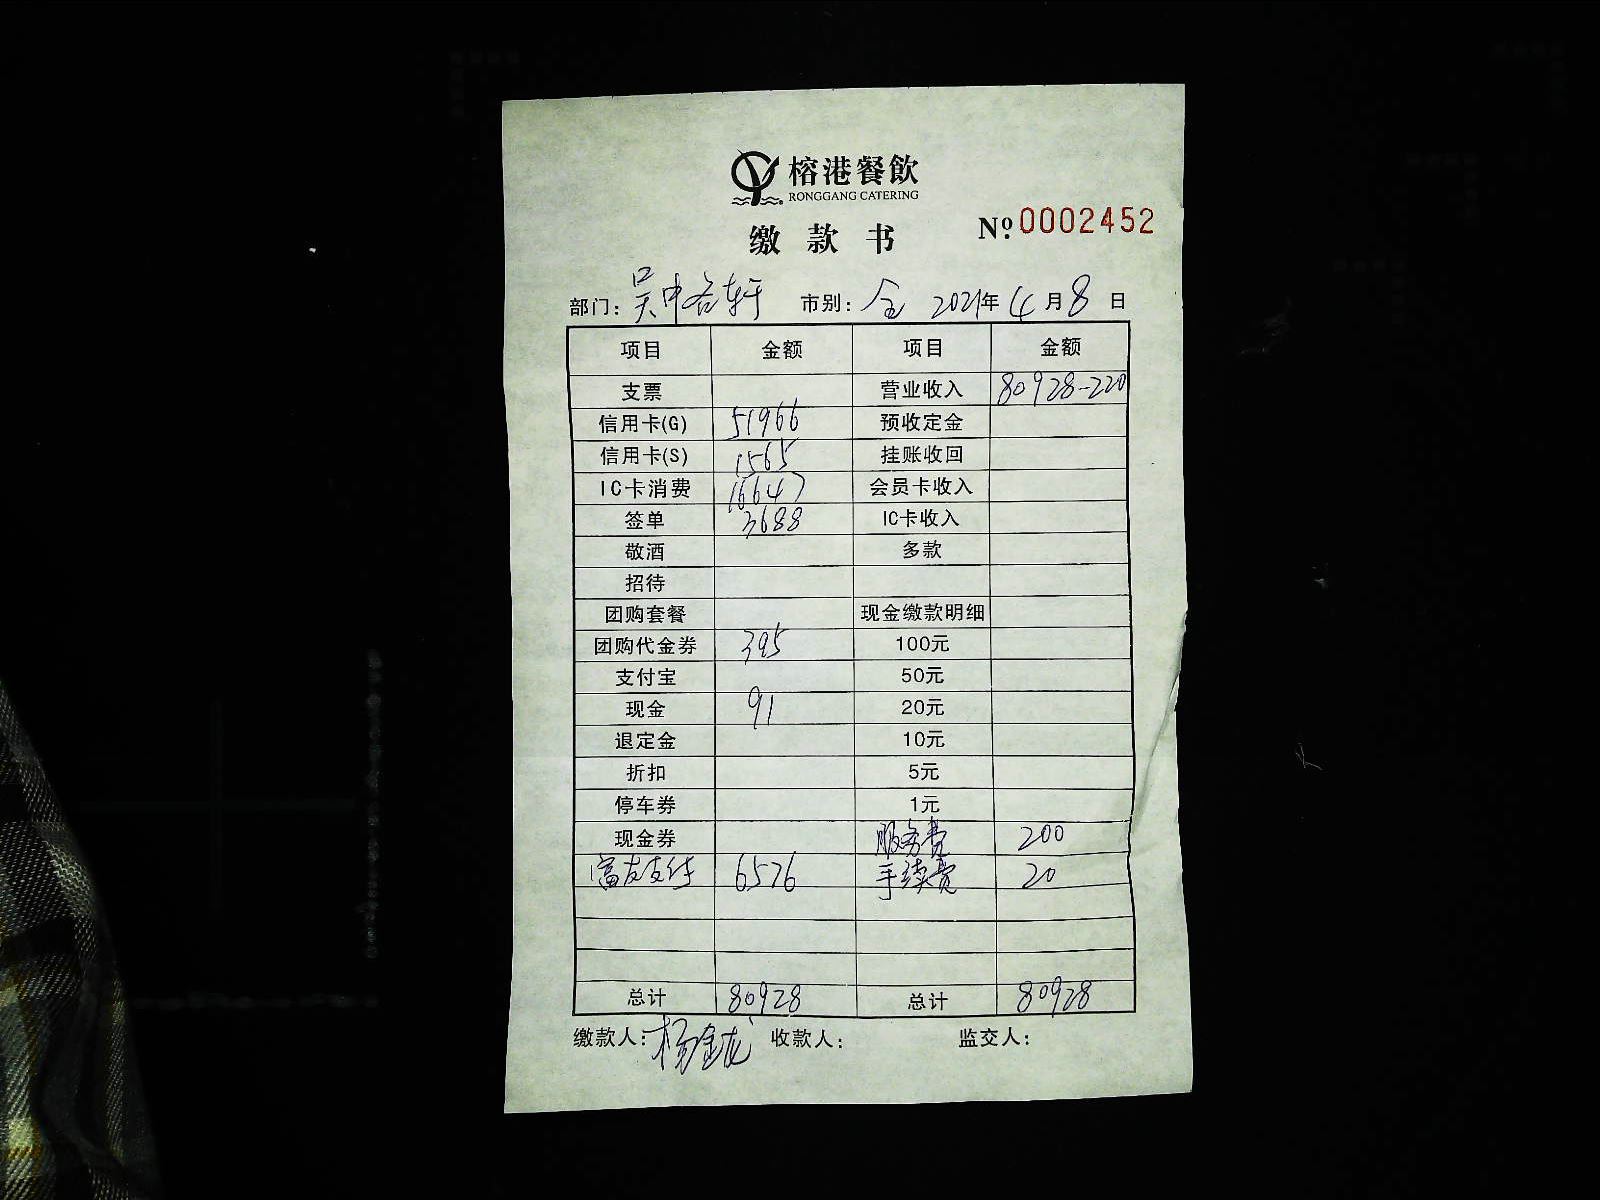 榕港餐飲
RONGGANG CATERING
缴款书
№ 0002452
部门: 吴中名轩 市别: 全 2021年4月8日
项目 金额 项目 金额
支票 营业收入 80928-220
信用卡(G) 51966 预收定金
信用卡(S) 1565 挂账收回
IC卡消费 16647 会员卡收入
签单 3688 IC卡收入
敬酒 多款
招待
团购套餐 现金缴款明细
团购代金券 395 100元
支付宝 50元
现金 91 20元
退定金 10元
折扣 5元
停车券 1元
现金券 服务费 200
富友支付 6576 手续费 20
总计 80928 总计 80928
缴款人: 杨金龙 收款人: 监交人: